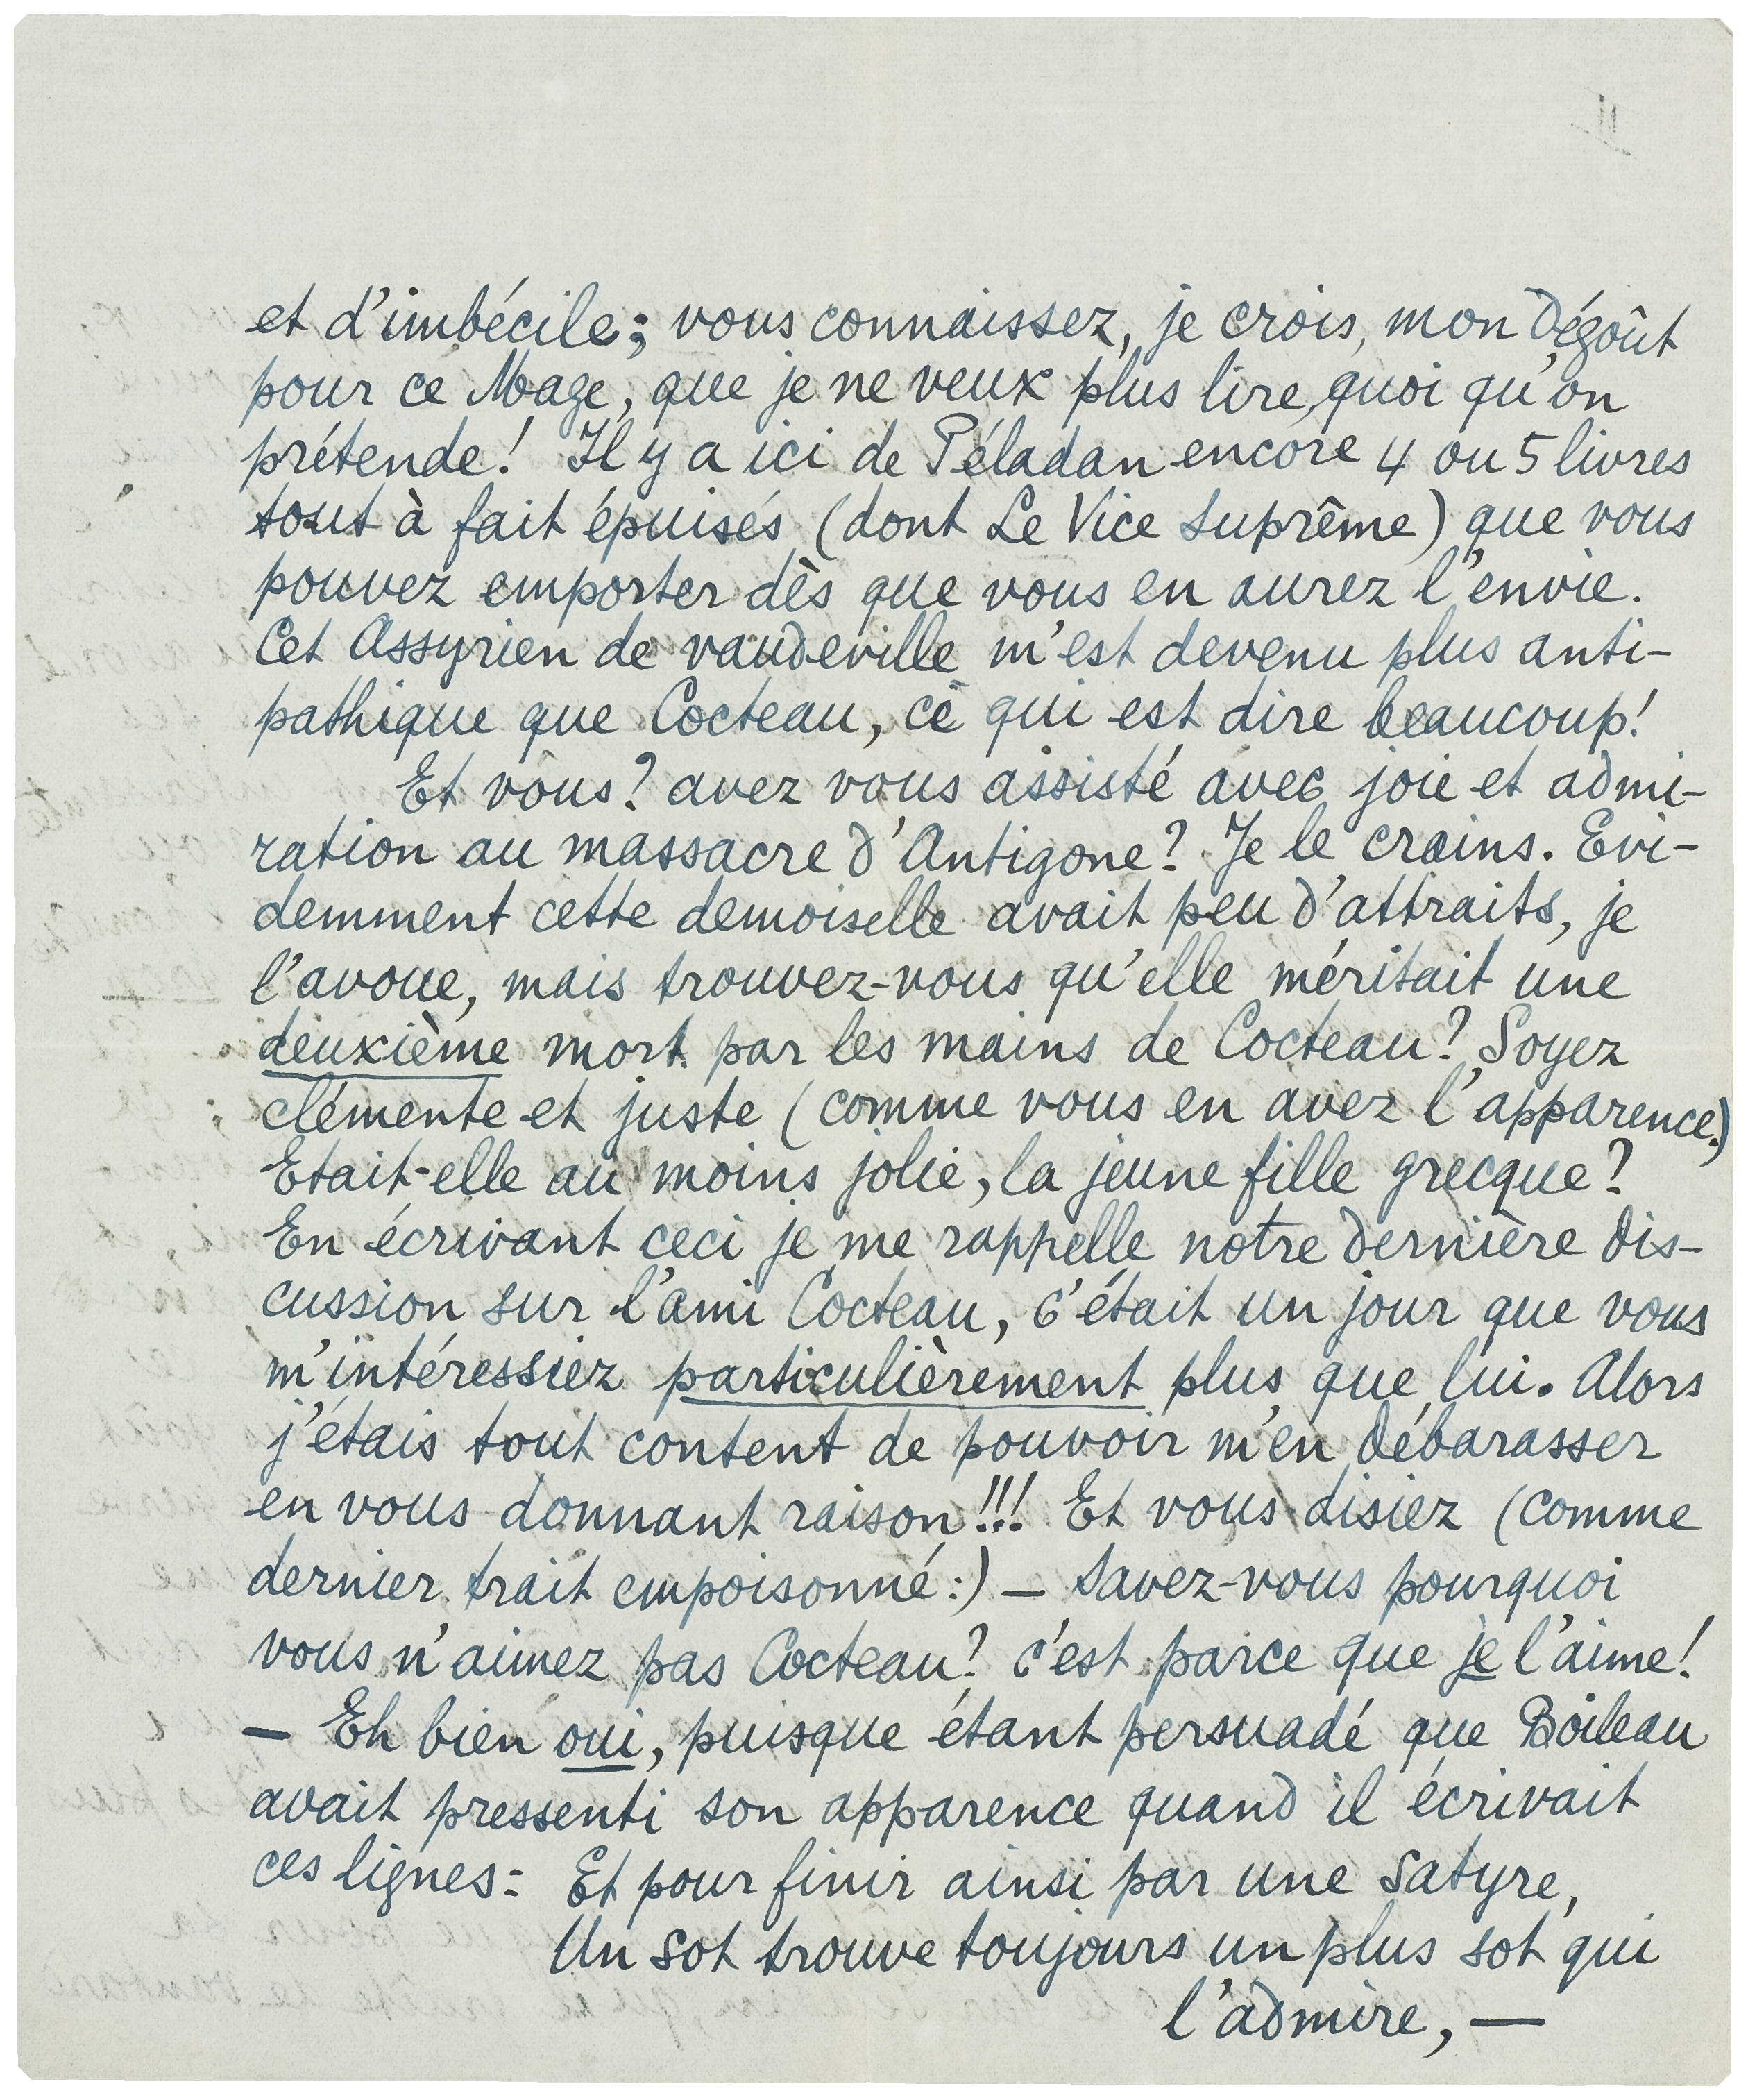 et d'imbécile; vous connaissez, je crois, mon dégoût
pour ce Mage, que je ne veux plus lire, quoi qu'on
prétende! Il y a ici de Péladan encore 4 ou 5 livres
tout à fait épuisés (dont Le Vice Suprême) que vous
pouvez emporter dès que vous en aurez l'envie.
Cet Assyrien de vaudeville m'est devenu plus anti-
pathique que Cocteau, ce qui est dire beaucoup!
Et vous? avez vous assisté avec joie et admi-
ration au massacre d'Antigone? Je le crains. Evi-
demment cette demoiselle avait peu d'attraits, je
l'avoue, mais trouvez-vous qu'elle méritait une
deuxième mort par les mains de Cocteau? Soyez
clémente et juste (comme vous en avez l'apparence.)
Etait-elle au moins jolie, la jeune fille grecque?
En écrivant ceci je me rappelle notre dernière dis-
cussion sur l'ami Cocteau, c'était un jour que vous
m'intéressiez particulièrement plus que lui. Alors
j'étais tout content de pouvoir m'en débarasser
en vous donnant raison!!! Et vous disiez (comme
dernier trait empoisonné:) — Savez-vous pourquoi
vous n'aimez pas Cocteau? c'est parce que je l'aime!
— Eh bien oui, puisque étant persuadé que Boileau
avait pressenti son apparence quand il écrivait
ces lignes: Et pour finir ainsi par une satyre,
Un sot trouve toujours un plus sot qui
l'admire, —